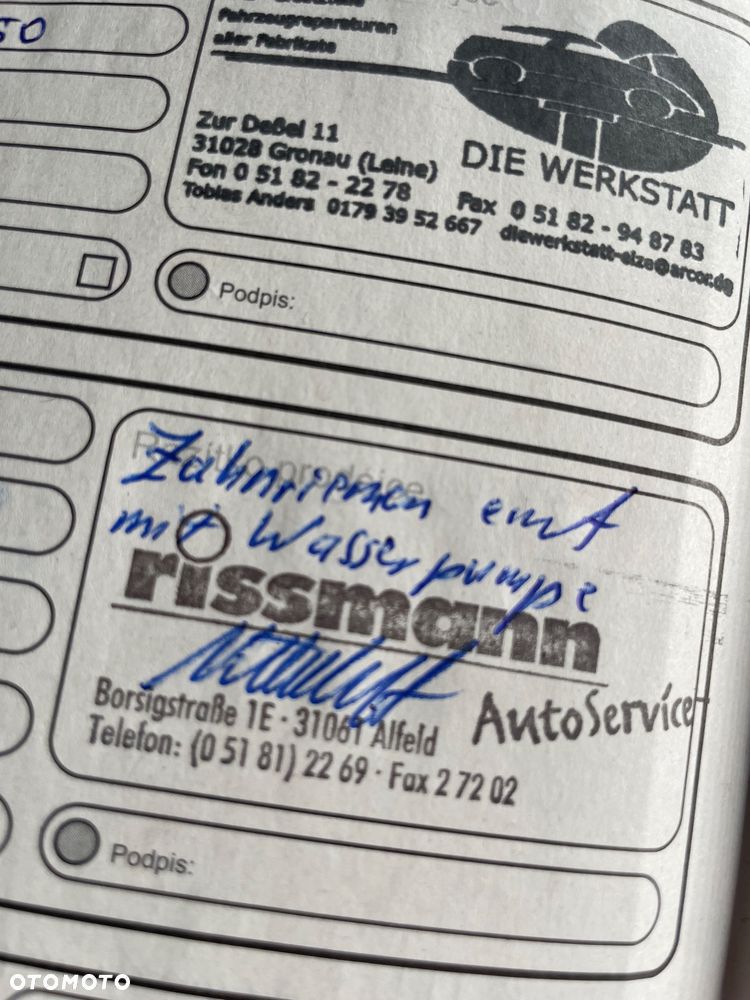 50
Fahrzeugreparaturen
aller Fabrikate
Zur Deßel 11
31028 Gronau (Leine)
Fon 0 51 82 - 22 78
Tobias Anders 0179 39 52 667
DIE WERKSTATT
Fax 0 51 82 - 94 87 83
diewerkstatt-elze@arcor.de
Podpis:
Razítko prodejce
Zahnriemen
mit Wasserpumpe
rissmann
AutoService
Borsigstraße 1E · 31061 Alfeld
Telefon: (0 51 81) 22 69 · Fax 2 72 02
Podpis:
OTOMOTO